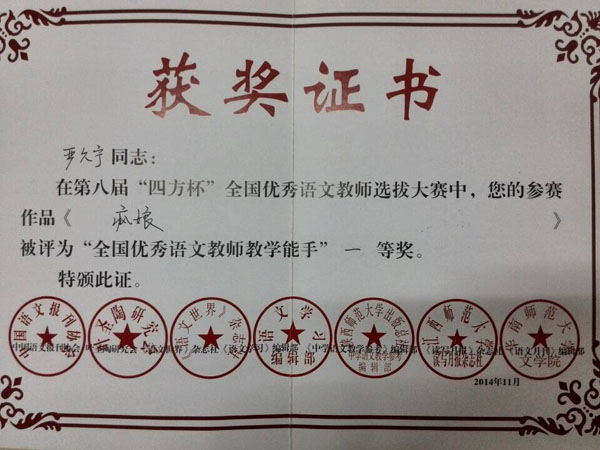 获奖证书
同志：
在第八届“四方杯”全国优秀语文教师选拔大赛中，您的参赛
作品《 疯娘 》
被评为“全国优秀语文教师教学能手” 一 等奖。
特颁此证。
中国语文报刊协会
叶圣陶研究会
《语文世界》杂志社
语文学习
编辑部
陕西师范大学出版总社
中学语文教学参考
编辑部
江西师范大学
读写月报杂志社
华南师范大学
文学院
中国语文报刊协会 叶圣陶研究会 《语文世界》杂志社 《语文学习》编辑部 《中学语文教学参考》编辑部 《读写月报》杂志社 《语文月刊》编辑部
2014年11月